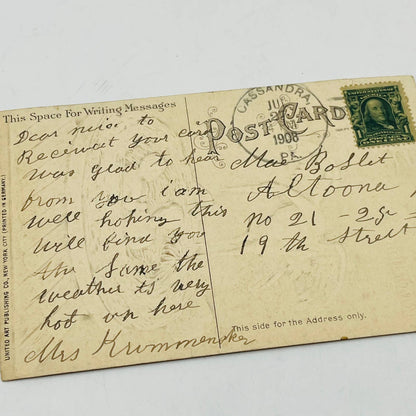 This Space For Writing Messages
Dear niss to
Receivat your card
was glad to hear
from you i am
well hoping this
will find you
the Same the
weather is very
hot up here
Mrs Krummensker
UNITED ART PUBLISHING CO., NEW YORK CITY (PRINTED IN GERMANY.)
POST CARD
CASSANDRA,
JUL
1908
PA.
Mae
Altoona
no 21-25-
19 th Street
This side for the Address only.